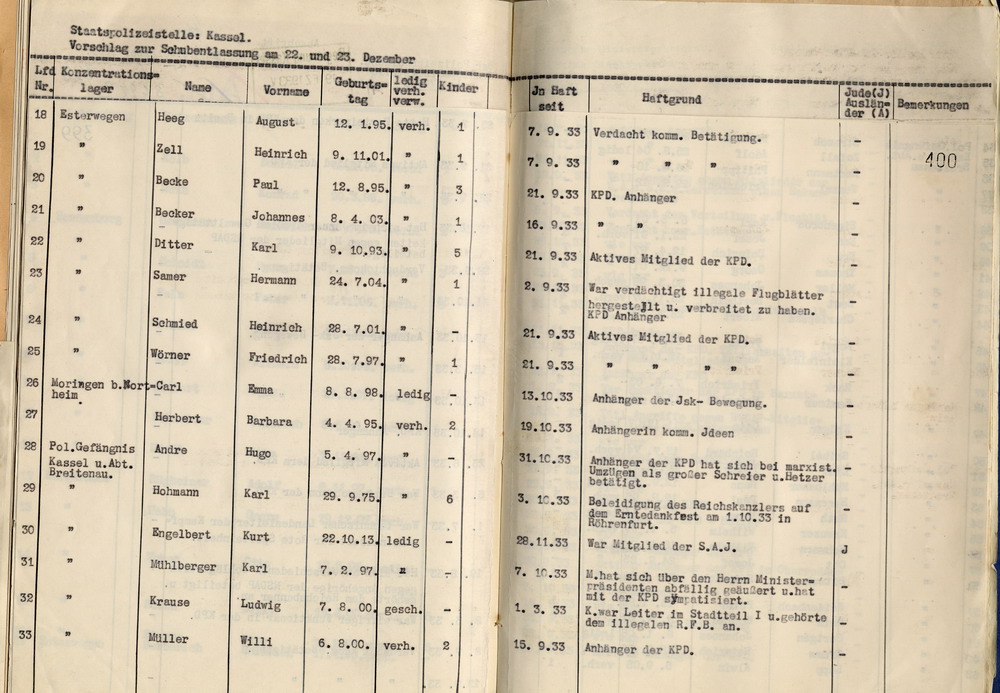 Staatspolizeistelle: Kassel.
Vorschlag zur Schubentlassung am 22. und 23. Dezember
Lfd Nr. Konzentrations= lager Name Vorname Geburts= tag ledig verh. verw. Kinder Jn Haft seit Haftgrund Jude(J) Auslän= der (A) Bemerkungen
18 Esterwegen Heeg August 12. 1.95. verh. 1 7. 9. 33 Verdacht komm. Betätigung. -
400
19 " Zell Heinrich 9. 11.01. " 1 7. 9. 33 " " " -
20 " Becke Paul 12. 8.95. " 3 21. 9.33 KPD. Anhänger -
21 " Becker Johannes 8. 4. 03. " 1 16. 9.33 " " -
22 " Ditter Karl 9. 10.93. " 5 21. 9.33 Aktives Mitglied der KPD. -
23 " Samer Hermann 24. 7.04. " 1 2. 9.33 War verdächtigt illegale Flugblätter
hergestellt u. verbreitet zu haben. -
KPD Anhänger
24 " Schmied Heinrich 28. 7.01. " - 21. 9.33 Aktives Mitglied der KPD. -
25 " Wörner Friedrich 28. 7.97. " 1 21. 9.33 " " " " -
26 Moringen b.Nort= Carl Emma 8. 8. 98. ledig - 13.10.33 Anhänger der Jsk- Bewegung. -
heim.
27 Herbert Barbara 4. 4. 95. verh. 2 19.10.33 Anhängerin komm. Jdeen -
28 Pol.Gefängnis Andre Hugo 5. 4. 97. " - 31.10.33 Anhänger der KPD hat sich bei marxist. -
Kassel u.Abt. Umzügen als großer Schreier u.Hetzer
Breitenau. betätigt.
29 " Hohmann Karl 29. 9.75. " 6 3. 10.33 Beleidigung des Reichskanzlers auf
dem Erntedankfest am 1.10.33 in -
Röhrenfurt.
30 " Engelbert Kurt 22.10.13. ledig - 28.11.33 War Mitglied der S.A.J. J
31 " Mühlberger Karl 7. 2. 97. " - 7. 10.33 M.hat sich über den Herrn Minister=
präsidenten abfällig geäußert u.hat -
mit der KPD sympatisiert.
32 " Krause Ludwig 7. 8. 00. gesch. - 1. 3. 33 K.war Leiter im Stadtteil I u.gehörte
dem illegalen R.F.B. an. -
33 " Müller Willi 6. 8.00. verh. 2 15. 9.33 Anhänger der KPD. -